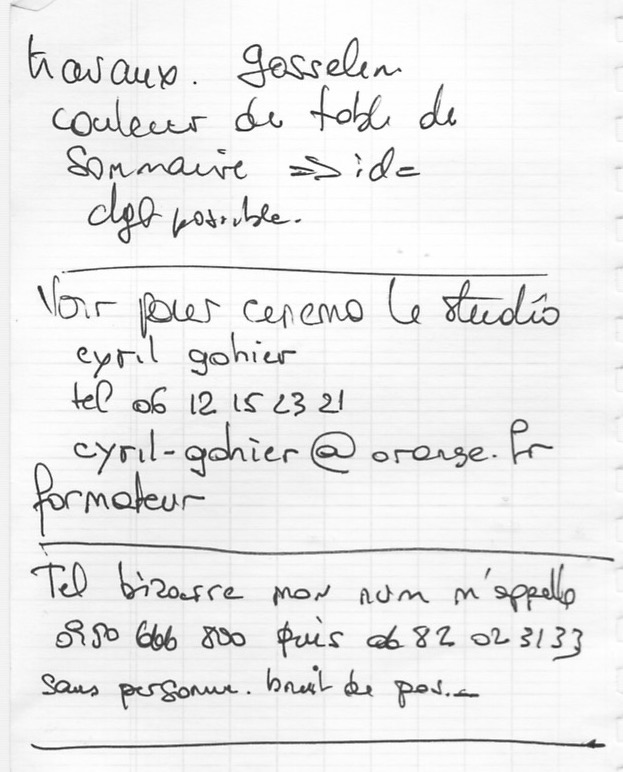 travaux. gosselin
couleur de table de
Sommaire => id=
dgt possible.
Voir pour cenemo le studio
cyril gohier
tel 06 12 15 23 21
cyril-gohier@orange.fr
formateur
Tel bizarre mon num m'appelle
0950 666 800 puis 06 82 02 31 33
sans personne. bruit de pas.